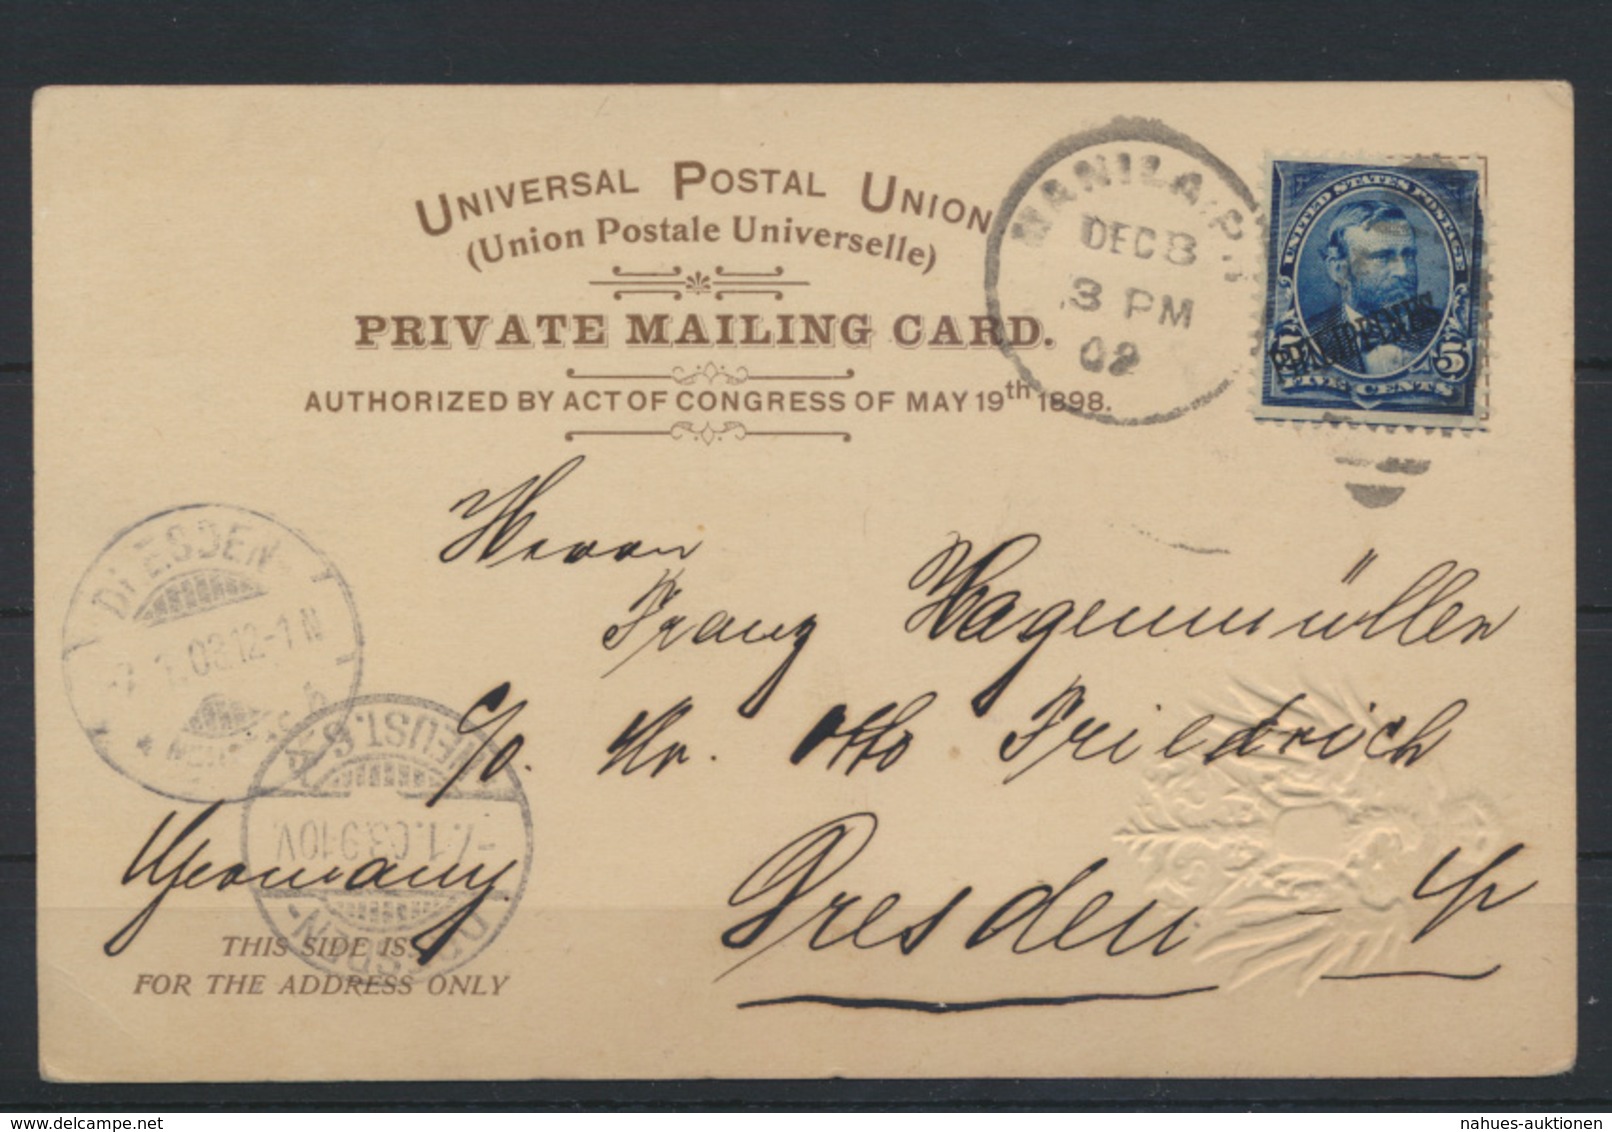 UNIVERSAL POSTAL UNION
(Union Postale Universelle)
PRIVATE MAILING CARD.
AUTHORIZED BY ACT OF CONGRESS OF MAY 19th 1898.
MANILA, P.I.
DEC 8
3 PM
02
UNITED STATES POSTAGE
PHILIPPINES
5 5
FIVE CENTS
Herrn
Franz Hagenmüller
c/o. Hr. Otto Friedrich
Dresden
Germany
DRESDEN-
7.1.03.12-1N
NEUST. 6
-7.1.03.9-10V.
DRESDEN-
THIS SIDE IS
FOR THE ADDRESS ONLY
nahues-auktionen